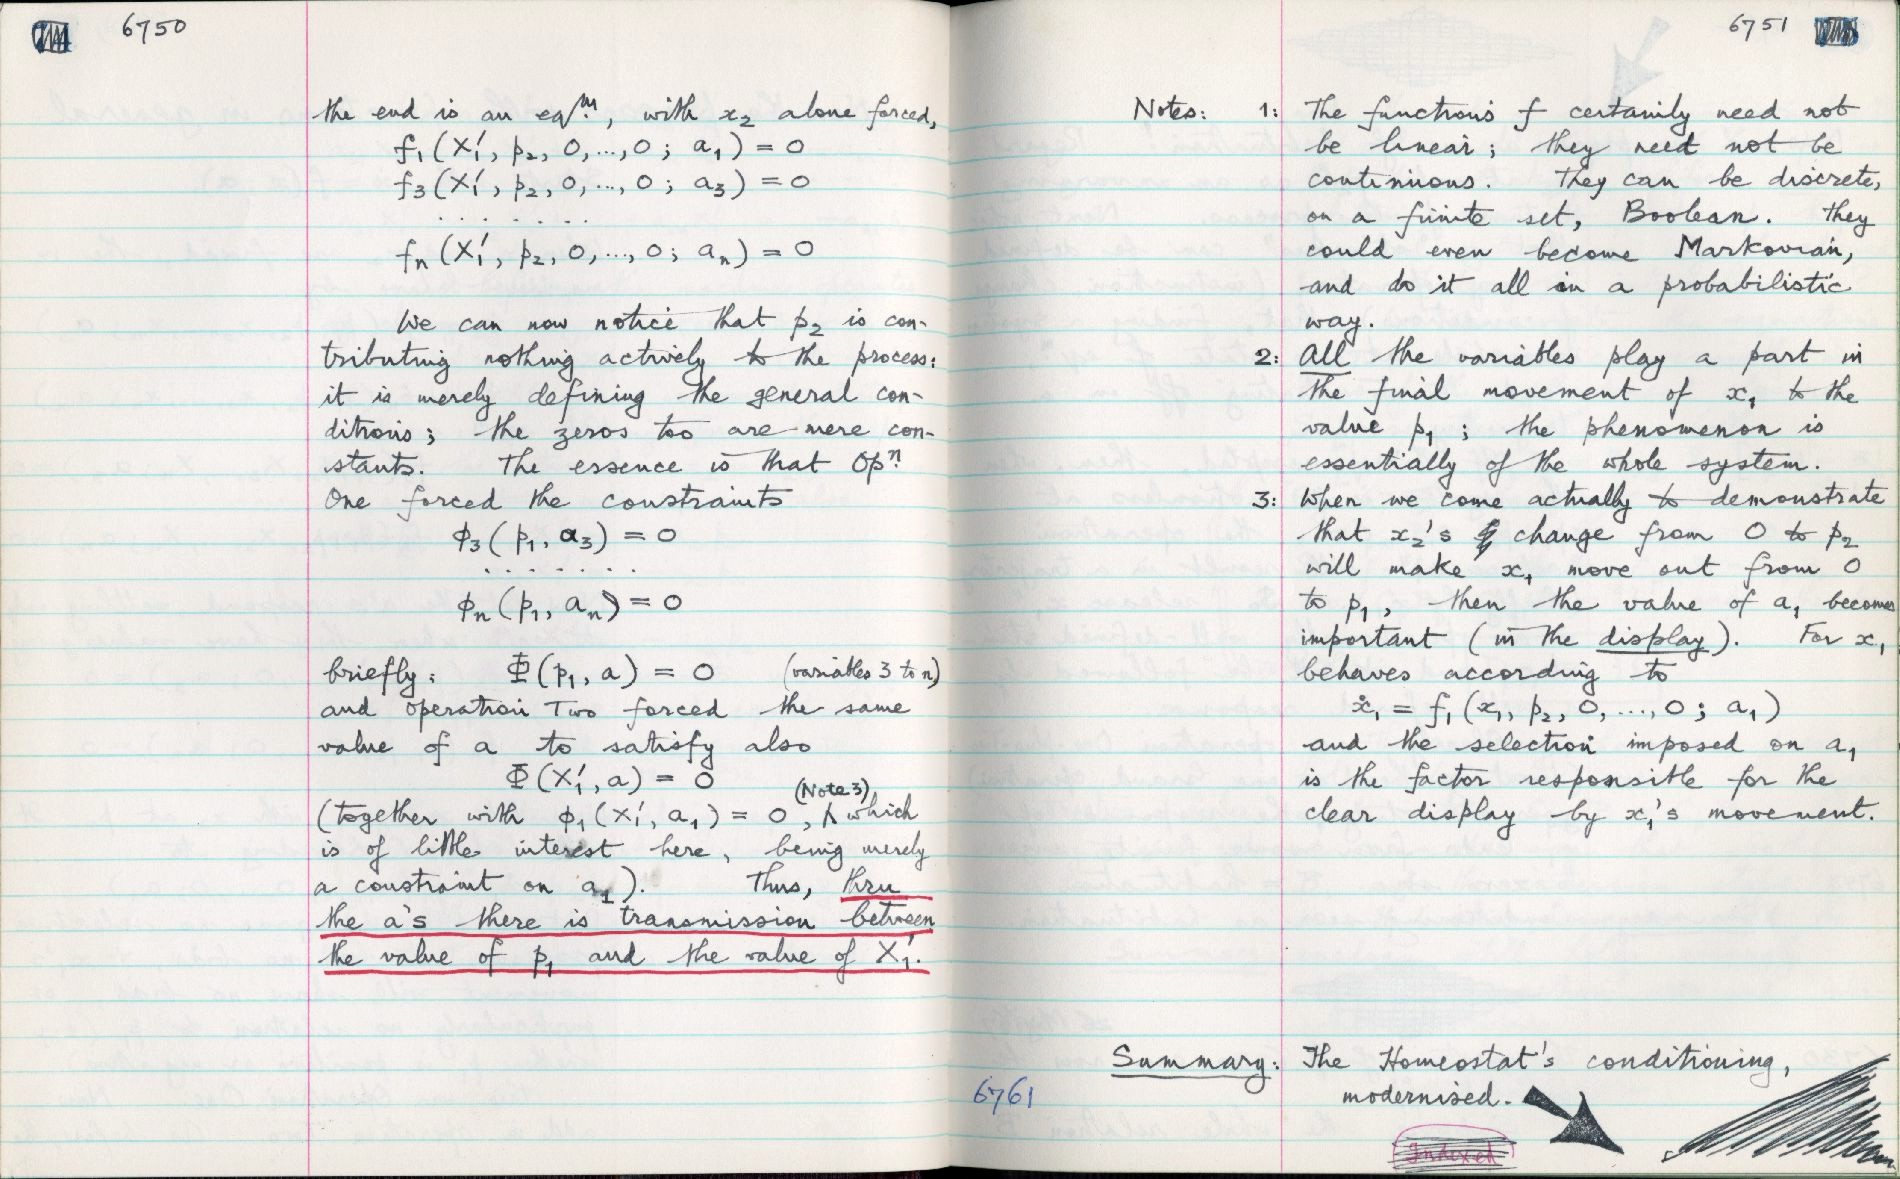 6750
the end is an eqm., with x₂ alone forced,
f₁(X₁′, p₂, 0,…,0; a₁) = 0
f₃(X₁′, p₂, 0,…,0; a₃) = 0
. . . . . . . .
fₙ(X₁′, p₂, 0,…,0; aₙ) = 0
We can now notice that p₂ is con-
tributing nothing actively to the process:
it is merely defining the general con-
ditions; the zeros too are mere con-
stants. The essence is that Opn.
One forced the constraints
ϕ₃(p₁, a₃) = 0
. . . . . . .
ϕₙ(p₁, aₙ) = 0
briefly: Φ(p₁, a) = 0 (variables 3 to n)
and operation Two forced the same
value of a to satisfy also
Φ(X₁′, a) = 0
(Note 3)
(together with ϕ₁(X₁′, a₁) = 0, ∧ which
is of little interest here, being merely
a constraint on a₁). Thus, thru
the a's there is transmission between
the value of p₁ and the value of X₁′.
6751
Notes: 1: The functions f certainly need not
be linear; they need not be
continuous. They can be discrete,
on a finite set, Boolean. They
could even become Markovian,
and do it all in a probabilistic
way.
2: All the variables play a part in
the final movement of x₁ to the
value p₁; the phenomenon is
essentially of the whole system.
3: When we come actually to demonstrate
that x₂'s change from 0 to p₂
will make x₁ move out from 0
to p₁, then the value of a₁ becomes
important (in the display). For x₁
behaves according to
ẋ₁ = f₁(x₁, p₂, 0,…,0; a₁)
and the selection imposed on a₁
is the factor responsible for the
clear display by x₁'s movement.
Summary: The Homeostat's conditioning,
modernised.
6761
Indexed